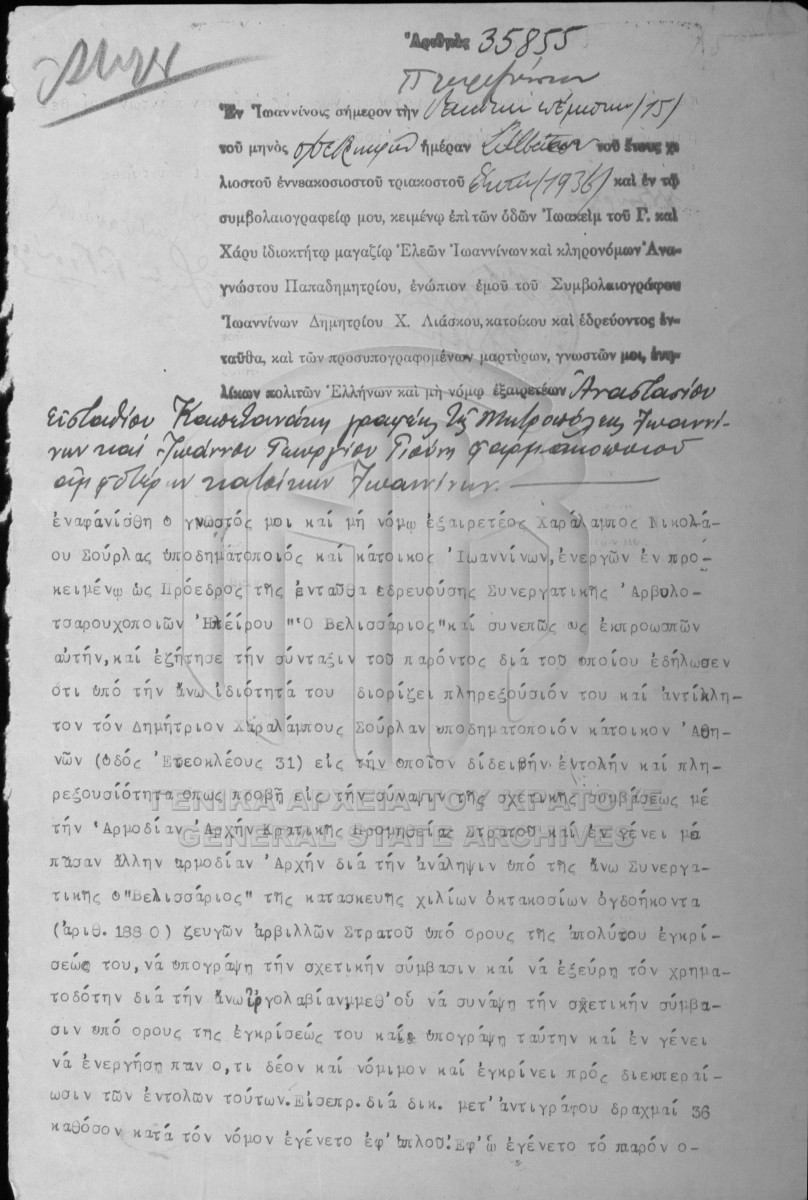 Ἀριθμὸς 35855
Πληρεξούσιον
Ἐν Ἰωαννίνοις σήμερον τὴν δεκάτην πέμπτην (15)
τοῦ μηνὸς ἡμέραν Σάββατον τοῦ ἔτους χι
λιοστοῦ ἐννεακοσιοστοῦ τριακοστοῦ ἕκτου (1936) καὶ ἐν τῷ
συμβολαιογραφείῳ μου, κειμένῳ ἐπὶ τῶν ὁδῶν Ἰωακεὶμ τοῦ Γ. καὶ
Χάρυ ἰδιοκτήτῳ μαγαζίῳ Ἐλεῶν Ἰωαννίνων καὶ κληρονόμων Ἀνα-
γνώστου Παπαδημητρίου, ἐνώπιον ἐμοῦ τοῦ Συμβολαιογράφου
Ἰωαννίνων Δημητρίου Χ. Λιάσκου, κατοίκου καὶ ἑδρεύοντος ἐν-
ταῦθα, καὶ τῶν προσυπογραφομένων μαρτύρων, γνωστῶν μοι, ἐνη-
λίκων πολιτῶν Ἑλλήνων καὶ μὴ νόμῳ ἐξαιρετέων Ἀναστασίου
Εὐσταθίου Καπετανάκη γραφέως τῆς Μητροπόλεως Ἰωαννί-
νων καὶ Ἰωάννου Γεωργίου φαρμακοποιοῦ
ἀμφοτέρων κατοίκων Ἰωαννίνων.
ἐναφάνίσθη ο γνωστός μοι καί μή νόμῳ ἐξαιρετέος Χαράλαμπος Νικολά-
ου Σούρλας ὑποδηματοποιός καί κάτοικος Ἰωαννίνων,ἐνεργῶν ἐν προ-
κειμένῳ ὡς Πρόεδρος τῆς ἐνταῦθα εδρευούσης Συνεργατικῆς Ἀρβυλο-
τσαρουχοποιῶν Ἠπείρου "Ὁ Βελισσάριος"καί συνεπῶς ως ἐκπροωσπῶν
αὐτήν,καί ἐζήτησε τήν σύνταξιν τοῦ παρόντος διά τοῦ ὁποίου ἐδήλωσεν
ὅτι ὑπό τήν ἄνω ἰδιότητά του διορίζει πληρεξούσιόν του καί ἀντίκλη-
τον τόν Δημήτριον Χαραλάμπους Σούρλαν υποδηματοποιόν κάτοικον Ἀθη-
νῶν (οδός Ἐτεοκλέους 31) εἰς τήν ὁποῖον δίδειτήν ἐντολήν καί πλη-
ρεξουσιότητα ὅπως προβῇ εἰς τήν σύναψιν τῆς σχετικῆς συμβάσεως μέ
τήν Ἁρμοδίαν Ἀρχήν Κρατικῆς Προμηθείας Στρατοῦ καί ἐν γένει μέ
πᾶσαν ἄλλην αρμοδίαν Ἀρχήν διά τήν ἀνάληψιν ὑπό τῆς ἄνω Συνεργα-
τικῆς ο"Βελισσάριος" τῆς κατασκευῆς χιλίων ὀκτακοσίων ὀγδοήκοντα
(ἀριθ.1880) ζευγῶν ἀρβιλλῶν Στρατοῦ ὑπό ορους τῆς ἀπολύτου ἐγκρί-
σεώς του,νά ὑπογράψῃ τήν σχετικήν σύμβασιν καί νά ἐξεύρη τόν χρημα-
τοδότην διά τήν ἄνωἐργολαβίαν,μεθ'οὗ νά συνάψῃ τήν σχετικήν σύμβα-
σιν υπό ορους της ἐγκρίσεώς του καί υπογράψῃ ταύτην καί ἐν γένει
νά ἐνεργήσῃ παν ο,τι δέον καί νόμιμον καί ἐγκρίνει πρός διεκπεραί-
ωσιν τῶν ἐντολῶν τούτων.Εἰσεπρ.διά δικ. μετ'ἀντιγράφου δραχμαί 36
καθόσον κατά τόν νόμον ἐγένετο ἐφ'ἁπλοῦ.Εφ'ᾧ ἐγένετο τό παρόν ο-
ΓΕΝΙΚΑ ΑΡΧΕΙΑ ΤΟΥ ΚΡΑΤΟΥΣ
GENERAL STATE ARCHIVES